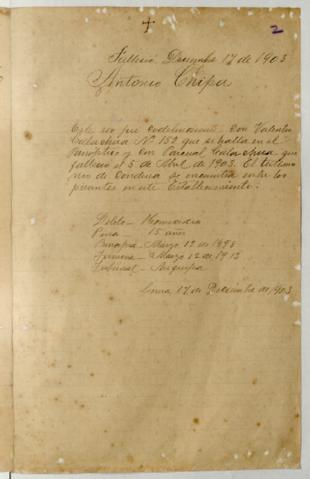 2
Falleció Diciembre 17 de 1903
Antonio Chipa
Este reo fué codelincuente con Valentin
Calachua Nº 152 que se halla en el
Panóptico y con Pascual Calachua que
falleció el 5 de Abril de 1903. El testimo
nio de condena se encuentra entre los
presentes en este Establecimiento.
Delito - Homicidio
Pena - 15 años
Principia - Marzo 12 de 1898
Termina - Marzo 12 de 1913
Tribunal - Arequipa
Lima 17 de Diciembre de 1903